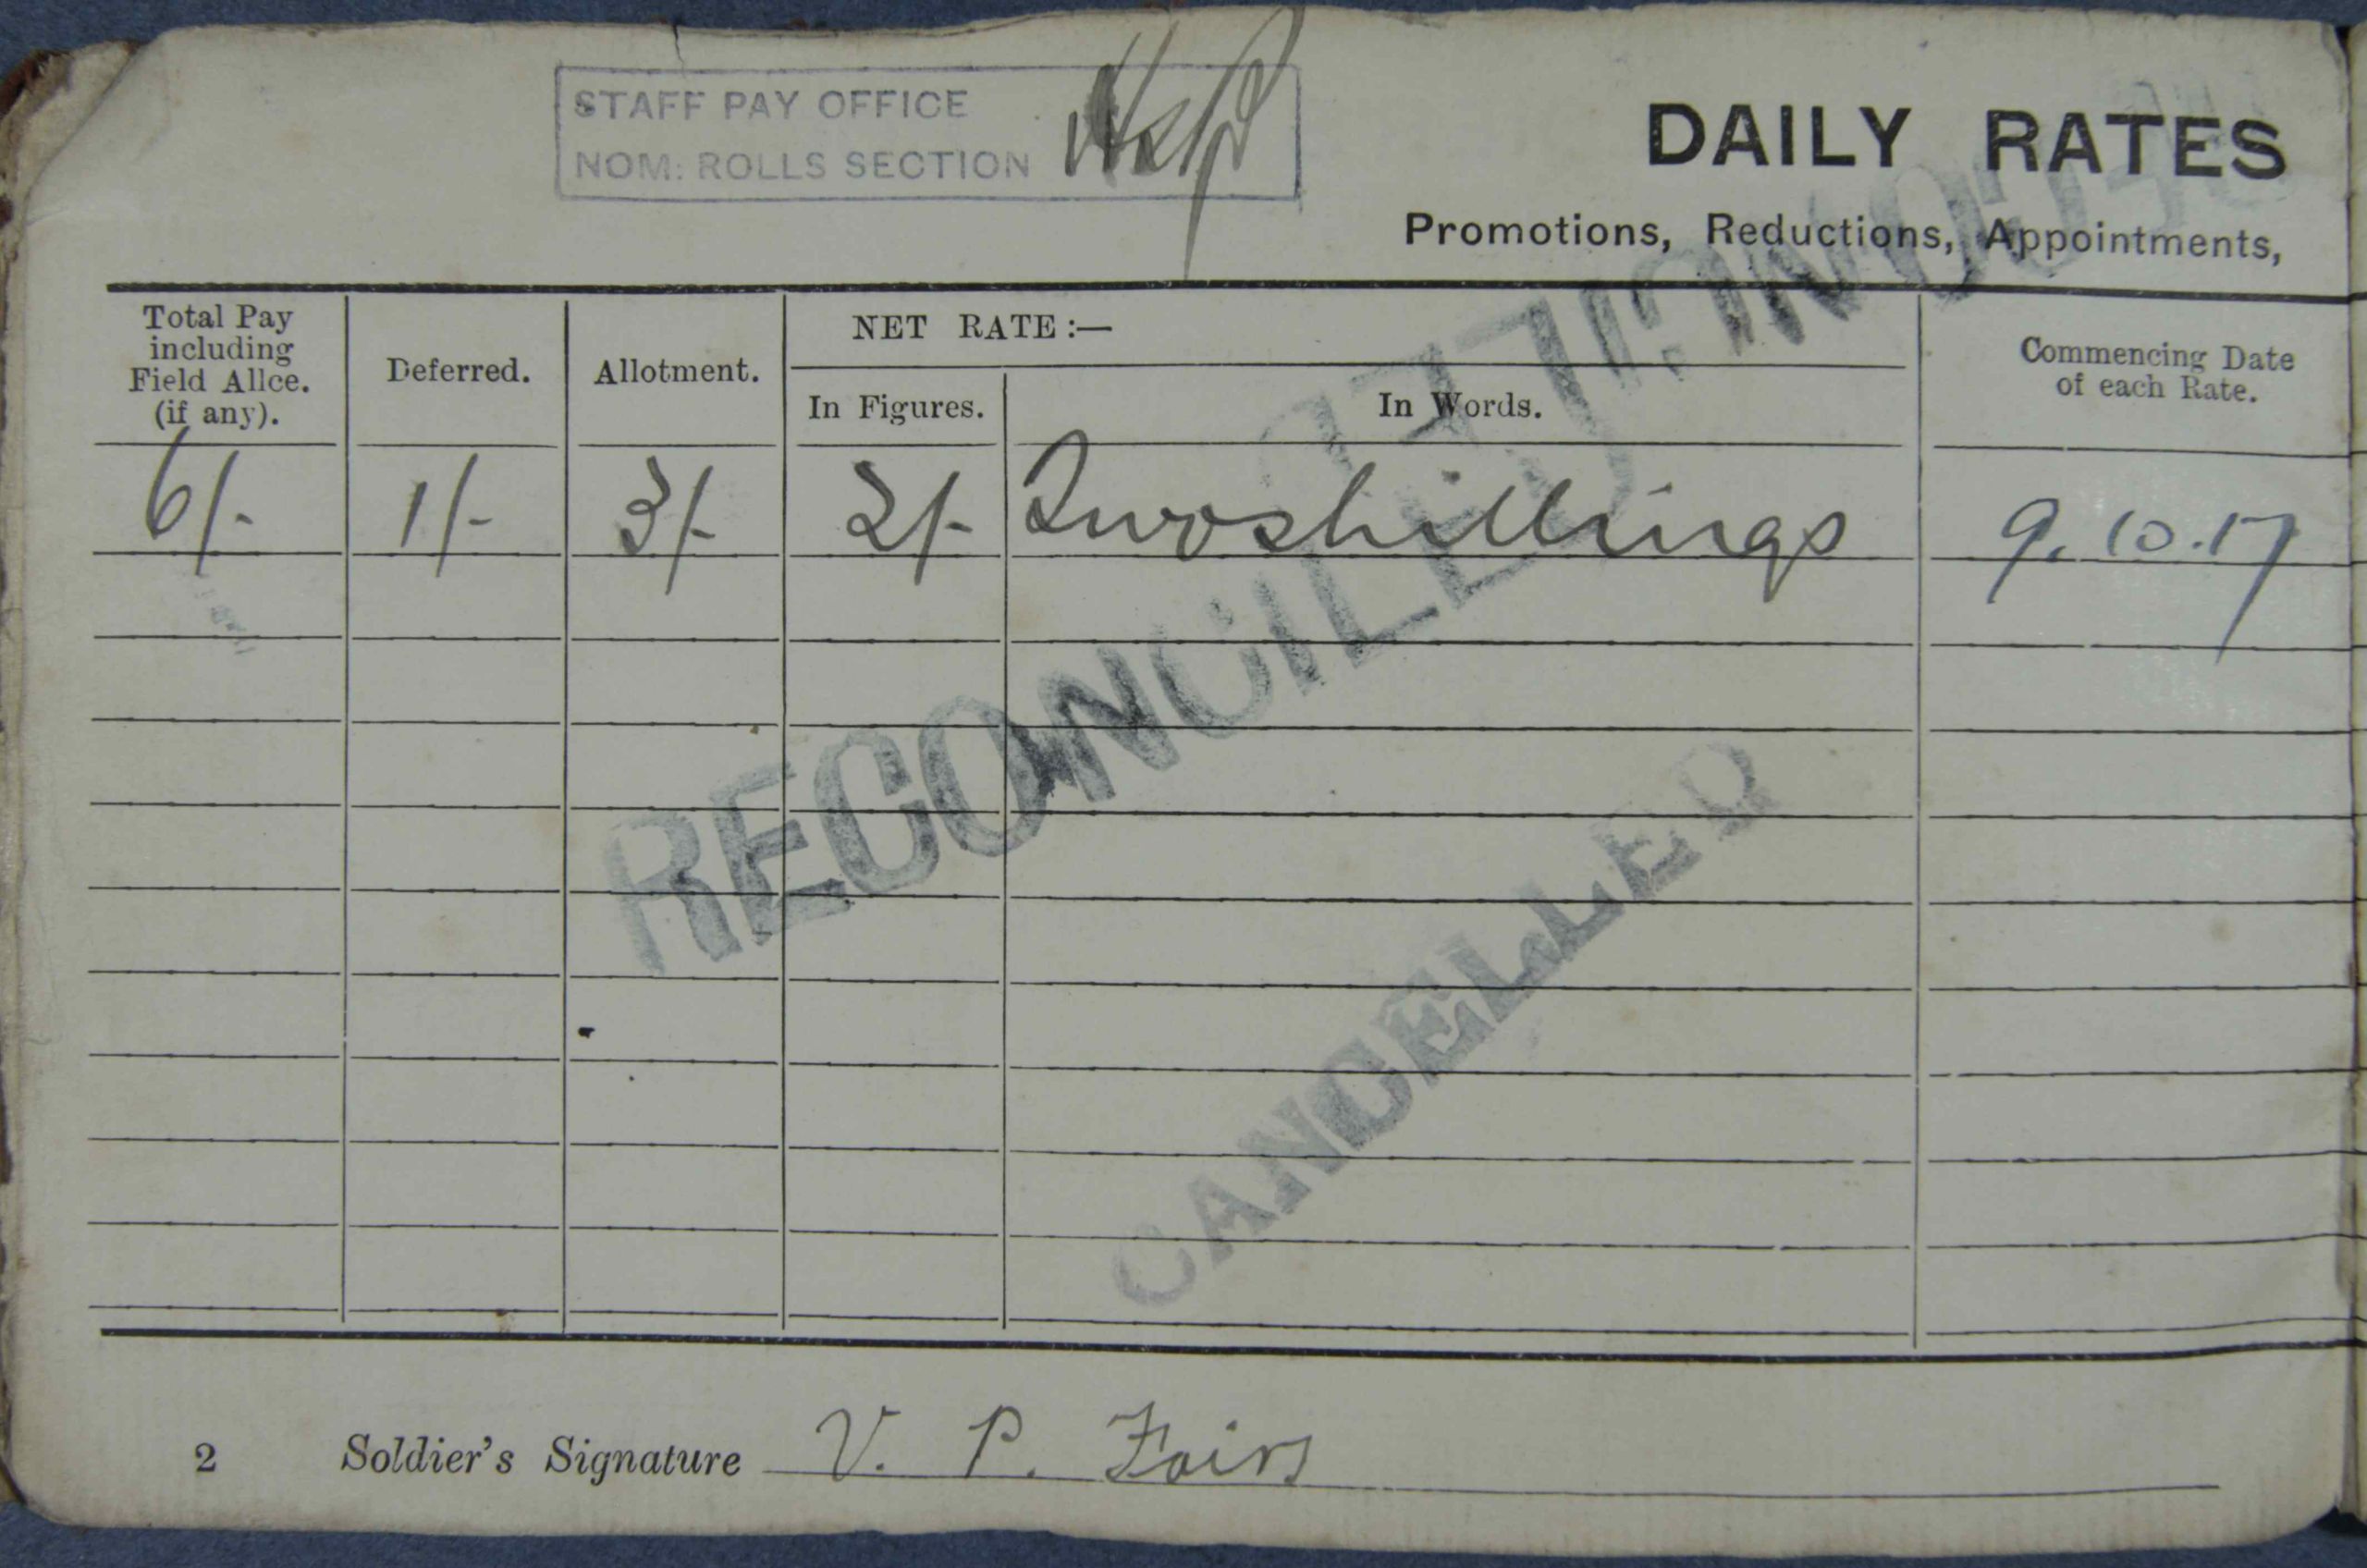 STAFF PAY OFFICE
NOM: ROLLS SECTION
DAILY RATES
Promotions, Reductions, Appointments,
Total Pay including Field Allce. (if any).
Deferred.
Allotment.
NET RATE :—
In Figures.
In Words.
Commencing Date of each Rate.
6/- 1/- 3/- 2/- Two shillings 9.10.17
RECONCILED
RECONCILED
CANCELLED
2 Soldier's Signature V. P. Fairs